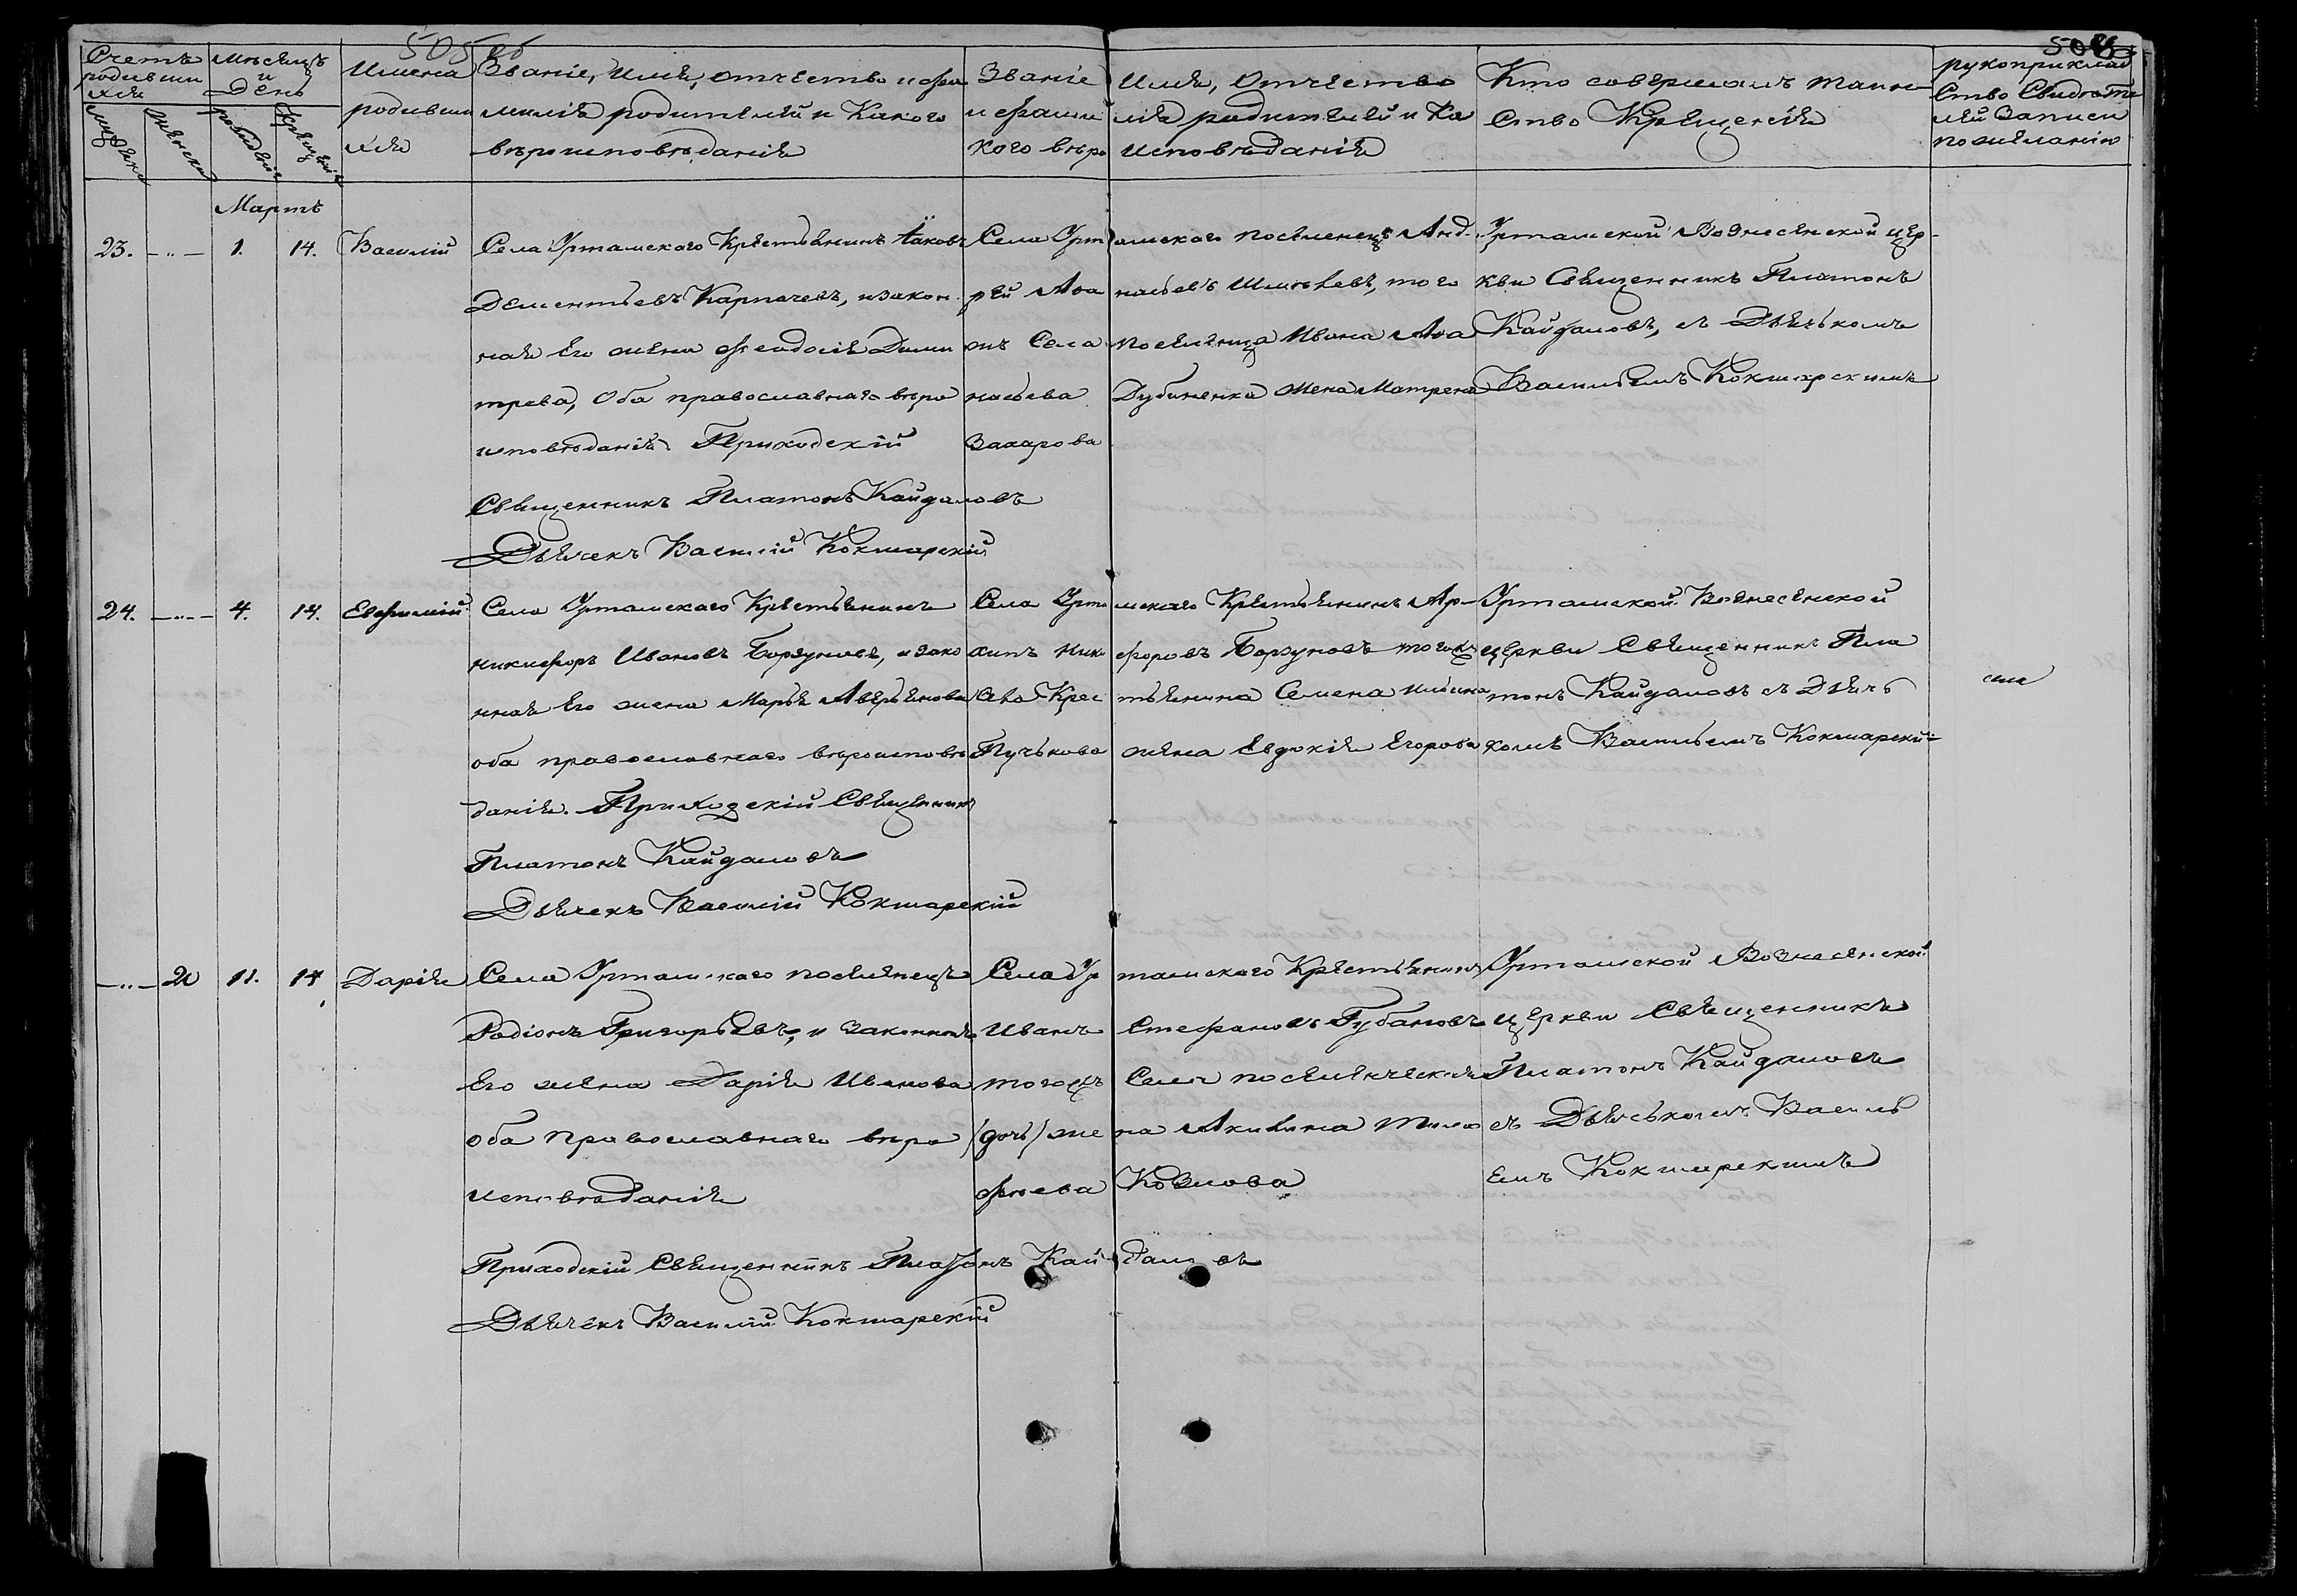 505 об
506
Счетъ
родивши
хся
Мѣсяцъ
и
День
Имена
родивши
хся
Званіе, Имя, отчество и фа
милія родителей и Какого
вѣроисповѣданія
Званіе
и фами
кого вѣро
Имя, Отчество
лія родителей и Ка
исповѣданія
Кто совершалъ таин
ство Крещенія
рукоприклад
ство Свидѣте
лей Записи
по желанію
мужска
женска
рожденія
Крещенія
Мартъ
23. —„— 1. 14. Василій
Села Уртамскаго Крестьянинъ Іаковъ
Дементьевъ Карпачевъ, и закон
ная Его жена Феодосія Дими
трева, Оба православнаго вѣро
исповѣданія. Приходскій
Священникъ Платонъ Кайдаловъ
Дьячекъ Василій Кокшарскій
Села Урт
рей Афа
жъ Села
насьева
Захарова
амскаго поселенецъ Анд-
насьевъ, того
поселенца Ивана Афа
Дубиненка жена Матрена
Уртамской Вознесенской цер-
кви Священникъ Платонъ
Кайдаловъ, съ Дьячькомъ
Васильемъ Кокшарскимъ
24. —„— 4. 14. Евфимій
Села Уртамскаго Крестьянинъ
Никифоръ Ивановъ Борзуновъ, и зако
нная Его жена Марья Аверьянова
оба православнаго вѣроисповѣ
данія. Приходскій Священникъ
Платонъ Кайдаловъ
Дьячекъ Василій Кокшарскій
Села Урта
хипъ Ники
села Крес
Пучькова
мскаго Крестьянинъ Ар-
форовъ Борзуновъ тогожъ
тьянина Семена
жена Евдокія Егорова
Уртамской Вознесенской
церкви Священникъ Пла
тонъ Кайдаловъ съ Дьячь
комъ Васильемъ Кокшарски=
—„— 20 11. 14 Дарія
Села Уртамскаго поселенецъ
Родіонъ Григорьевъ, и законная
Его жена Дарія Иванова
оба православнаго вѣро
исповѣданія
Приходскій Священникъ Платонъ Кай
даловъ
Дьячекъ Василій Кокшарскій
Села Ур
Иванъ
тогожъ
(дочь) же
фѣева
тамскаго Крестьянинъ
Стефановъ Губановъ
Села
на Акилина Тимо
Козлова
Уртамской Вознесенской
церкви Священникъ
Платонъ Кайдаловъ
съ Дьячькомъ Василь
емъ Кокшарскимъ